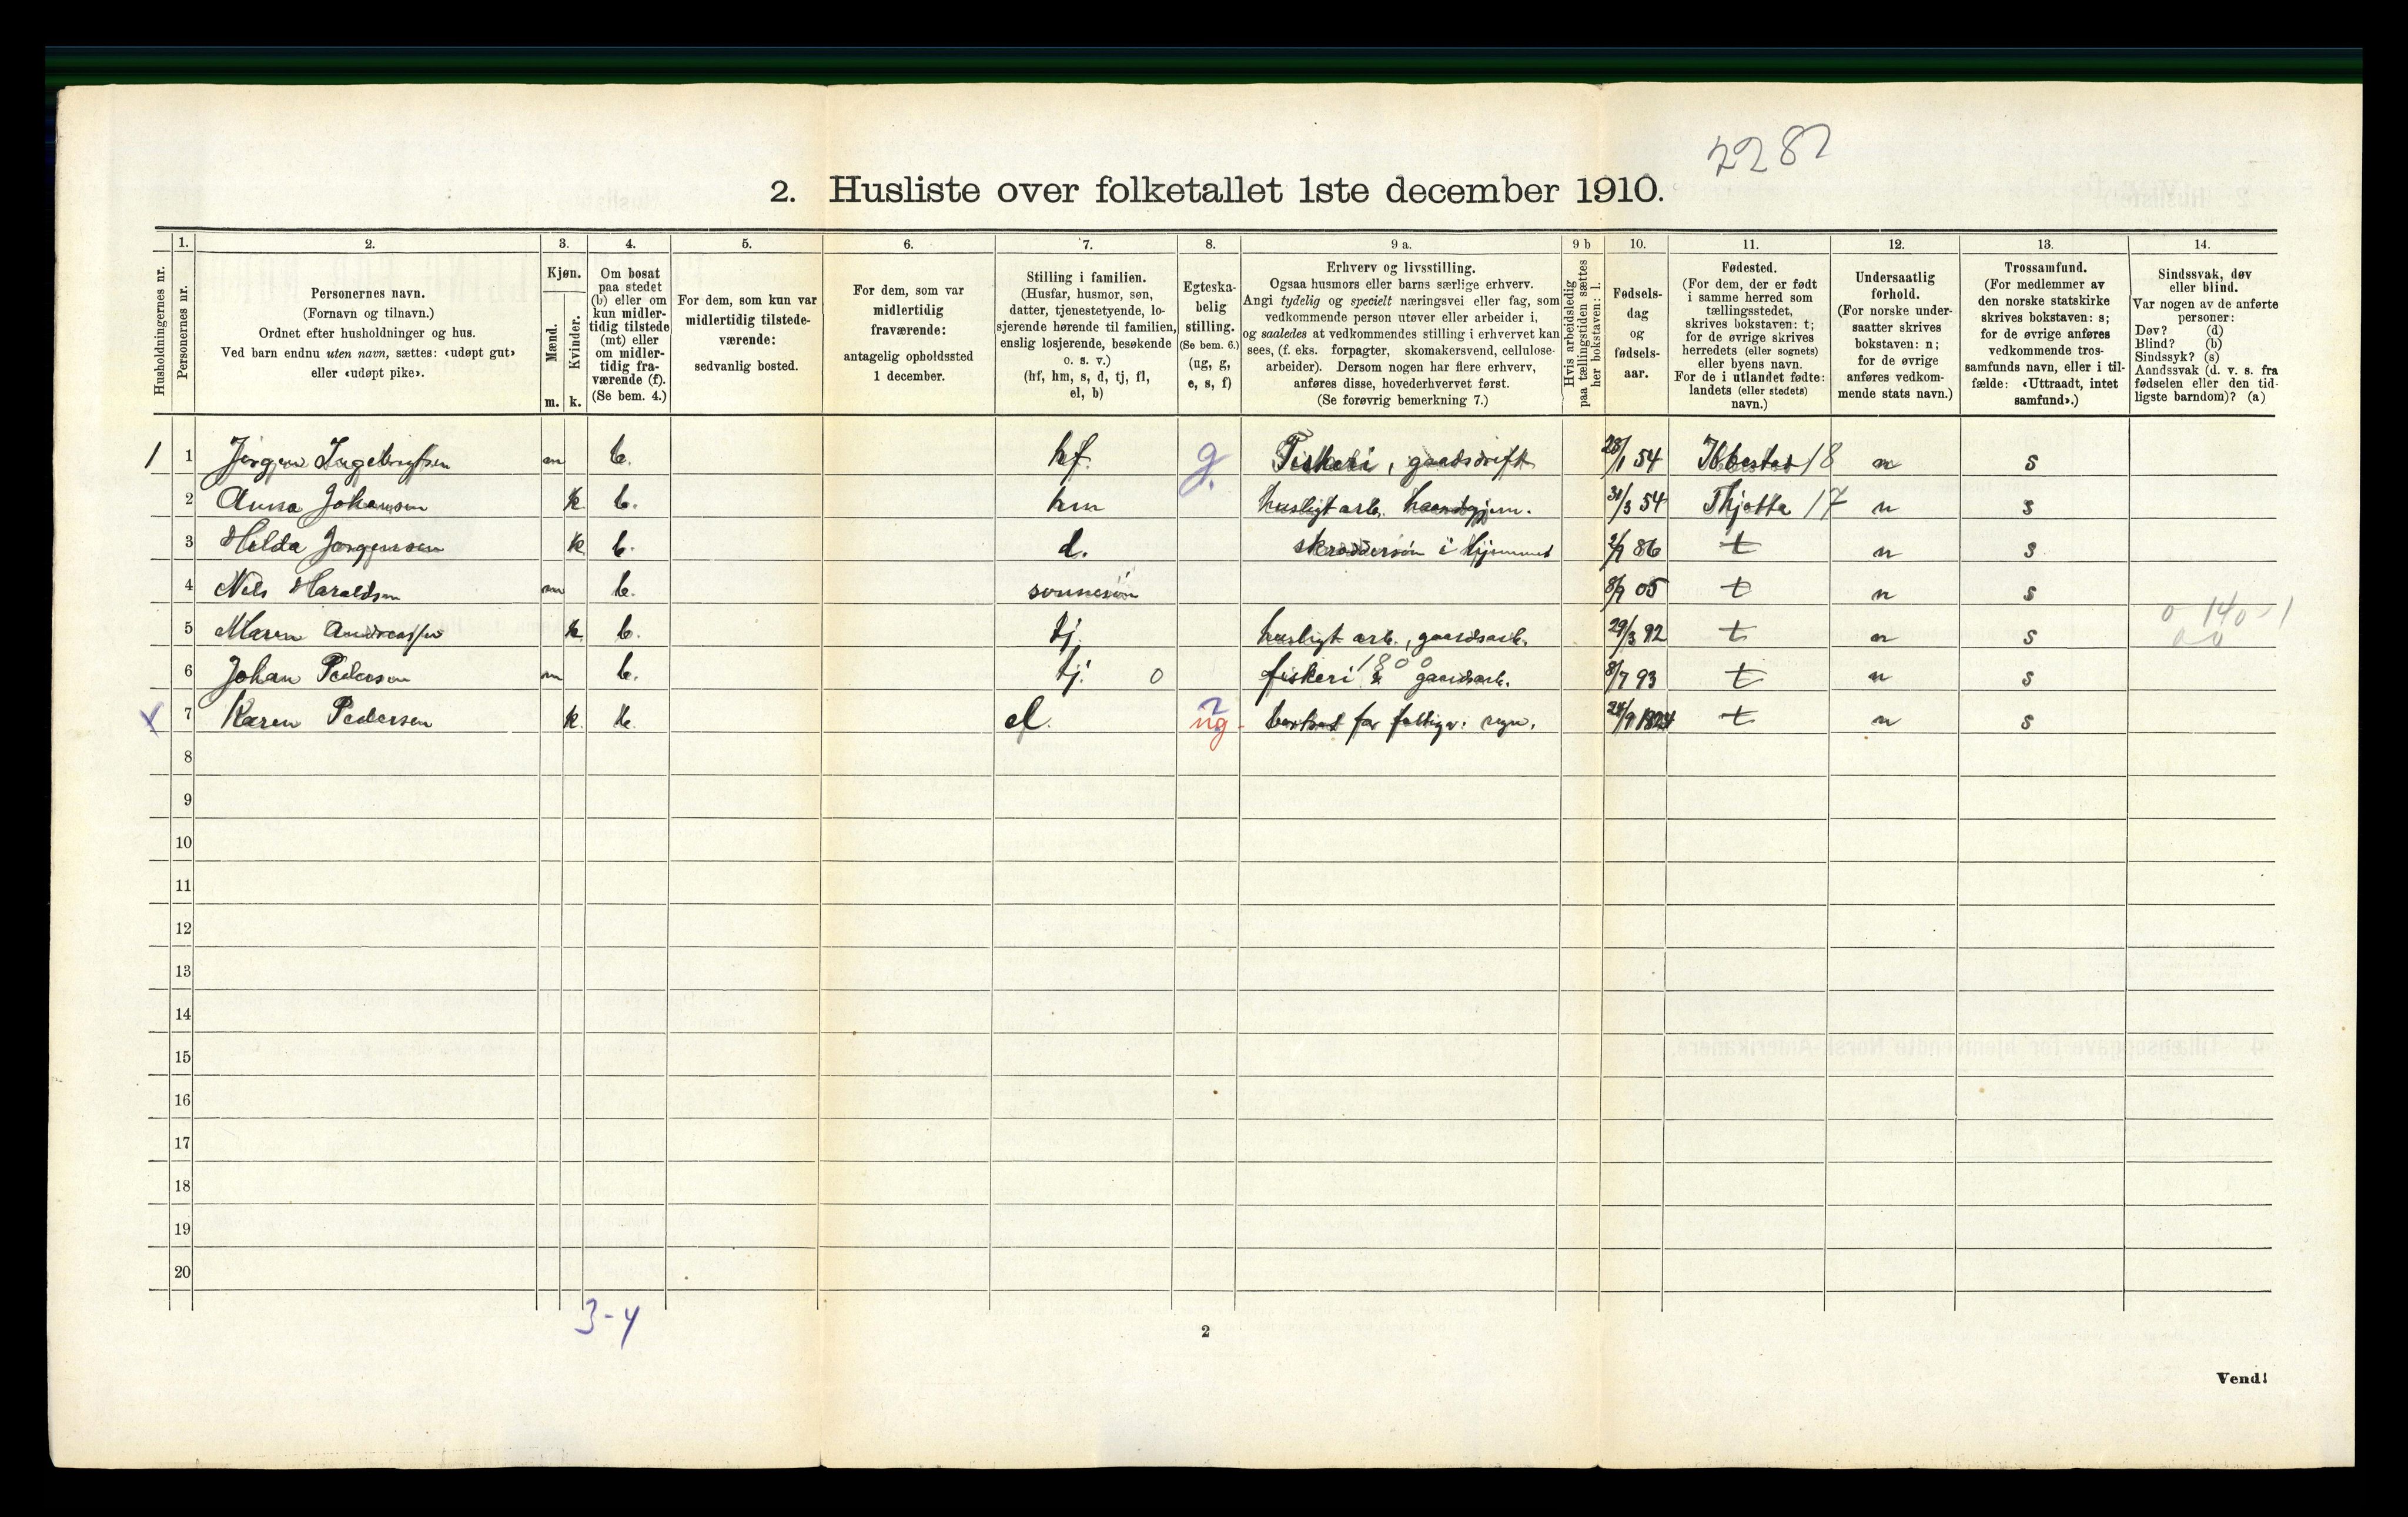 2287
2. Husliste over folketallet 1ste december 1910.
Husholdningernes nr.
1. Personernes nr.
2. Personernes navn.
(Fornavn og tilnavn.)
Ordnet efter husholdninger og hus.
Ved barn endnu uten navn, sættes: «udøpt gut»
eller «udøpt pike».
3. Kjøn.
Mænd. m.
Kvinder. k.
4. Om bosat
paa stedet
(b) eller om
kun midler-
tidig tilstede
(mt) eller
om midler-
tidig fra-
værende (f).
(Se bem. 4.)
5. For dem, som kun var
midlertidig tilstede-
værende:
sedvanlig bosted.
6. For dem, som var
midlertidig
fraværende:
antagelig opholdssted
1 december.
7. Stilling i familien.
(Husfar, husmor, søn,
datter, tjenestetyende, lo-
sjerende hørende til familien,
enslig losjerende, besøkende
o. s. v.)
(hf, hm, s, d, tj, fl,
el, b)
8. Egteska-
belig
stilling.
(Se bem. 6.)
(ug, g,
e, s, f)
9 a. Erhverv og livsstilling.
Ogsaa husmors eller barns særlige erhverv.
Angi tydelig og specielt næringsvei eller fag, som
vedkommende person utøver eller arbeider i,
og saaledes at vedkommendes stilling i erhvervet kan
sees, (f. eks. forpagter, skomakersvend, cellulose-
arbeider). Dersom nogen har flere erhverv,
anføres disse, hovederhvervet først.
(Se forøvrig bemerkning 7.)
9 b Hvis arbeidsledig
paa tællingstiden sættes
her bokstaven: l.
10. Fødsels-
dag
og
fødsels-
aar.
11. Fødested.
(For dem, der er født
i samme herred som
tællingsstedet,
skrives bokstaven: t;
for de øvrige skrives
herredets (eller sognets)
eller byens navn.
For de i utlandet fødte:
landets (eller stedets)
navn.)
12. Undersaatlig
forhold.
(For norske under-
saatter skrives
bokstaven: n;
for de øvrige
anføres vedkom-
mende stats navn.)
13. Trossamfund.
(For medlemmer av
den norske statskirke
skrives bokstaven: s;
for de øvrige anføres
vedkommende tros-
samfunds navn, eller i til-
fælde: «Uttraadt, intet
samfund».)
14. Sindssvak, døv
eller blind.
Var nogen av de anførte
personer:
Døv? (d)
Blind? (b)
Sindssyk? (s)
Aandssvak (d. v. s. fra
fødselen eller den tid-
ligste barndom)? (a)
1 1 Jørgen Ingebrigtsen m b. hf. g. Fiskeri, gaardsdrift 28/1 54 Ibbestad 18 n s
2 Anna Johansen k b. hm husligt arb. haandgjern. 31/3 54 Thjøtta 17 n s
3 Helda Jørgensen k b. d. skræddersøm i hjemmet 86 t n s
4 Nils Haraldsen m b. sønnesøn 8/9 05 t n s
5 Maren Andreassen k b. tj. husligt arb., gaardsarb. 29/3 92 t n s 0-140-1
0 0
6 Johan Pedersen m b. tj. 0 fiskeri & gaardsarb. 1800 8/7 93 t n s
x 7 Karen Pedersen k b. el. ? ug - bortsat for fattigv. regn. 24/9 1824 t n s
8
9
10
11
12
13
14
15
16
17
18
19
20
3-4
2
Vend!